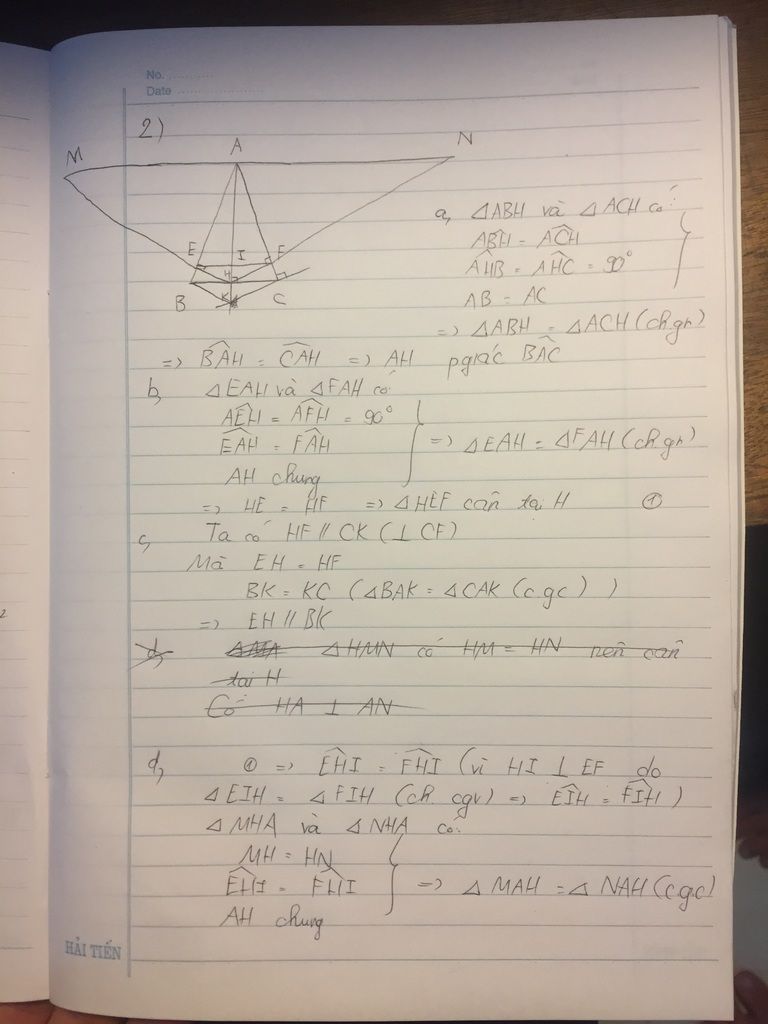 No. ............
Date ........................
2)
M
A
N
E
I
F
H
B
K
C
a, △ABH và △ACH có:
ABH = ACH
AHB = AHC = 90°
AB = AC
=> △ABH = △ACH (ch.gn)
=> BAH = CAH => AH pgiác BAC
b, △EAH và △FAH có:
AEH = AFH = 90°
EAH = FAH => △EAH = △FAH (ch gn)
AH chung
=> HE = HF => △HEF cân tại H ①
c, Ta có HF // CK (⊥ CF)
Mà EH = HF
BK = KC (△BAK = △CAK (c.gc))
=> EH // BK
d, △MA △HMN có HM = HN nên cân
tại H
Có HA ⊥ AN
d, ① => EHI = FHI (vì HI ⊥ EF do
△EIH = △FIH (ch cgv) => EIH = FIH)
△MHA và △NHA có:
MH = HN
EHI = FHI => △MAH = △NAH (c.g.c)
AH chung
HẢI TIẾN
2